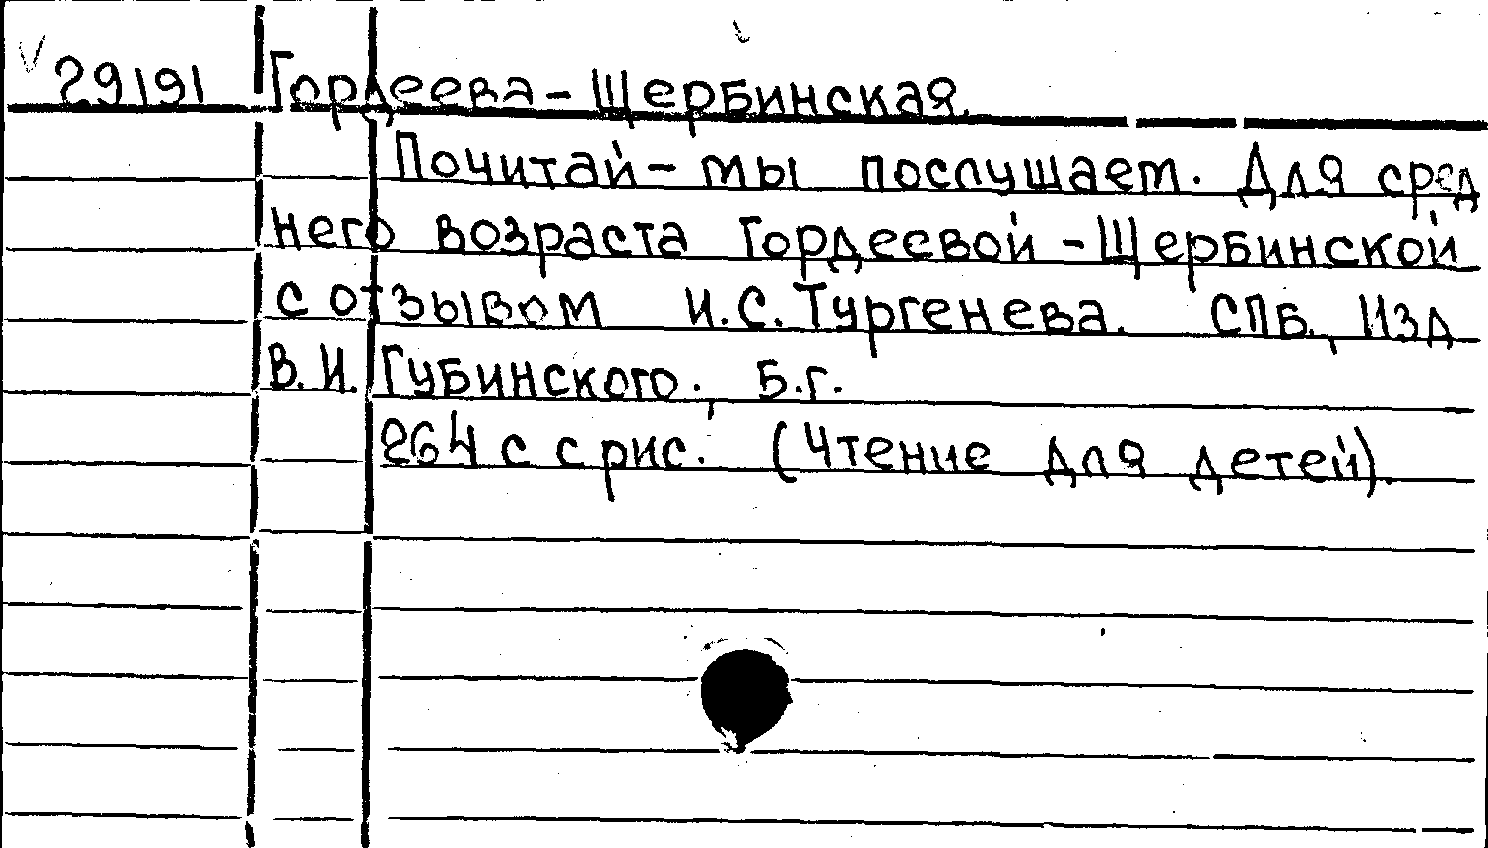 29191 Гордеева-Щербинская.
Почитай - мы послушаем. Для сред
него возраста Гордеевой - Щербинской
с отзывом И.С. Тургенева. СПБ., Изд
В.И. Губинского., Б.г.
264 с с рис. (Чтение для детей).